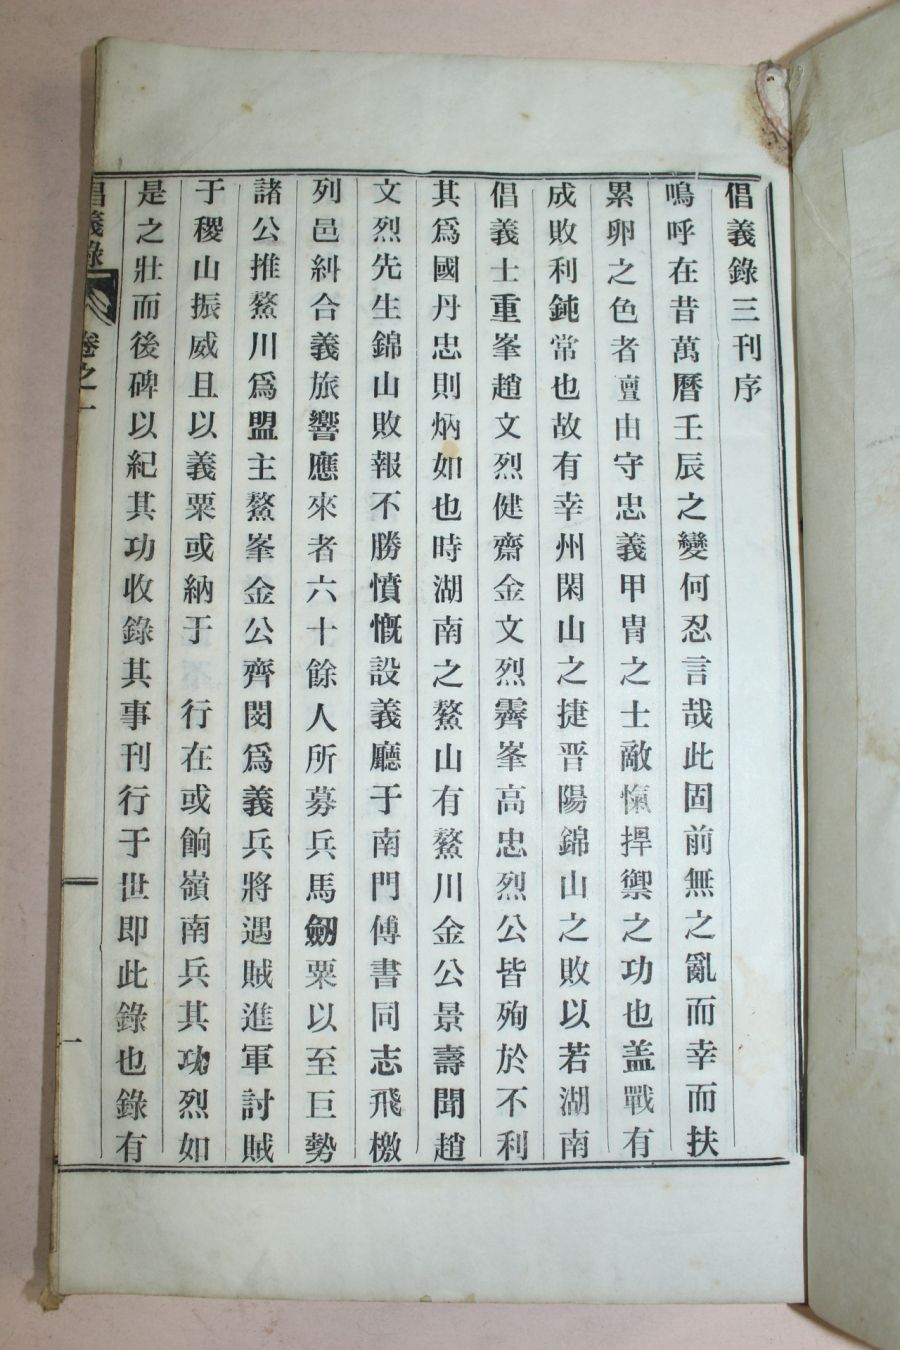 倡義錄三刊序
嗚呼在昔萬曆壬辰之變何忍言哉此固前無之亂而幸而扶
累卵之危者亶由守忠義甲胄之士敵愾捍禦之功也盖戰有
成敗利鈍常也故有幸州閑山之捷晋陽錦山之敗以若湖南
倡義士重峯趙文烈健齋金文烈霽峯高忠烈公皆殉於不利
其爲國丹忠則炳如也時湖南之鰲山有鰲川金公景壽聞趙
文烈先生錦山敗報不勝憤慨設義廳于南門傅書同志飛檄
列邑糾合義旅響應來者六十餘人所募兵馬劒粟以至巨勢
諸公推鰲川爲盟主鰲峯金公齊閔爲義兵將遇賊進軍討賊
于稷山振威且以義粟或納于 行在或餉嶺南兵其功烈如
是之壯而後碑以紀其功收錄其事刊行于世即此錄也錄有
倡義錄 卷之一 一